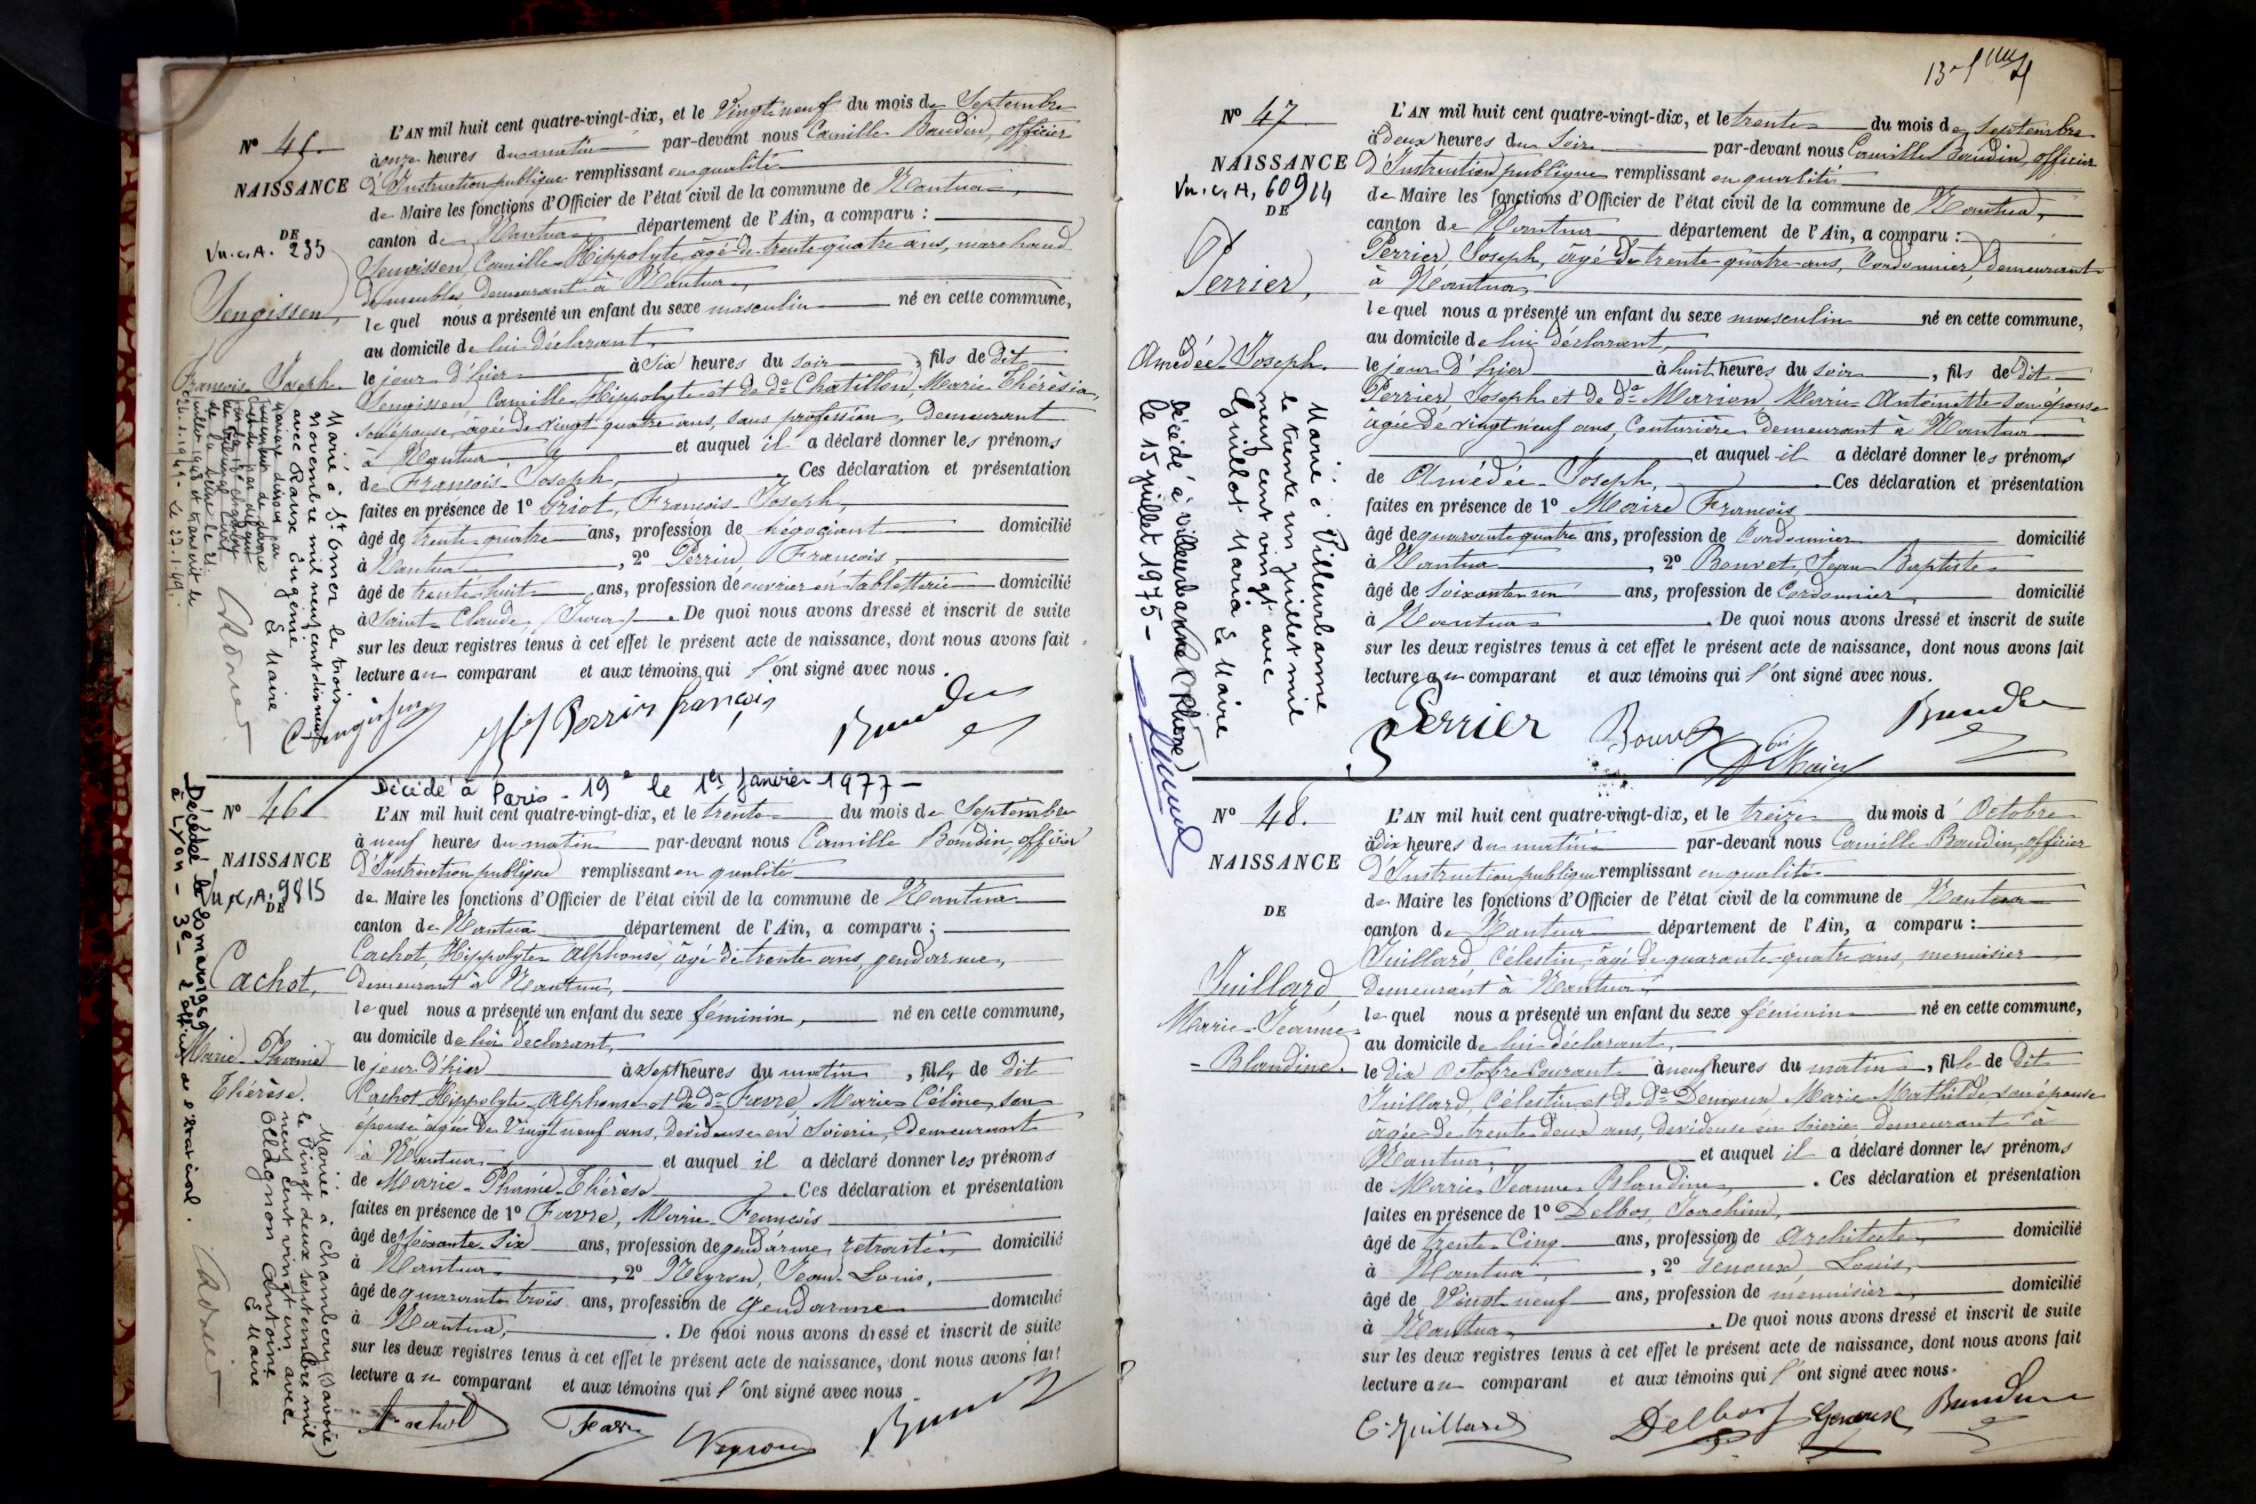 Nº 45.
NAISSANCE
DE
Vu. c. A. 235
Jengissen,
François Joseph
L'AN mil huit cent quatre-vingt-dix, et le Vingt neuf du mois de Septembre
à onze heures du matin par-devant nous Camille Baudin, officier
d'Instruction publique remplissant en qualité
de Maire les fonctions d'Officier de l'état civil de la commune de Nantua,
canton de Nantua département de l'Ain, a comparu :
Jengissen, Camille Hippolyte, âgé de trente quatre ans, marchand
de meubles demeurant à Nantua,
le quel nous a présenté un enfant du sexe masculin né en cette commune,
au domicile de lui déclarant,
le jour d'hier à Six heures du soir, fils de dit
Jengissen Camille Hippolyte et de de Chatillon, Marie Thérésia,
son épouse, âgée de vingt quatre ans, sans profession, demeurant
à Nantua, et auquel il a déclaré donner les prénoms
de François-Joseph, . Ces déclaration et présentation
faites en présence de 1º Griot, François-Joseph,
âgé de trente quatre ans, profession de négociant domicilié
à Nantua, 2º Perrin, François
âgé de trente huit ans, profession de ouvrier en tabletterie domicilié
à Saint-Claude, (Jura) . De quoi nous avons dressé et inscrit de suite
sur les deux registres tenus à cet effet le présent acte de naissance, dont nous avons fait
lecture au comparant et aux témoins qui l'ont signé avec nous.
Perrin françois
Marié à St Omer le trois
novembre mil neuf cent dix neuf
avec Raux Eugénie
Le Maire
Décédé à Paris - 19e le 1er Janvier 1977 -
Nº 46
NAISSANCE
Vu. c. A. 9815
DE
Cachot,
Marie Phamie
Thérèse.
L'AN mil huit cent quatre-vingt-dix, et le trente du mois de Septembre
à neuf heures du matin par-devant nous Camille Baudin, officier
d'Instruction publique remplissant en qualité
de Maire les fonctions d'Officier de l'état civil de la commune de Nantua
canton de Nantua département de l'Ain, a comparu :
Cachot, Hippolyte Alphonse, âgé de trente ans, gendarme,
demeurant à Nantua,
le quel nous a présenté un enfant du sexe féminin, né en cette commune,
au domicile de lui déclarant,
le jour d'hier à sept heures du matin, fille de dit
Cachot Hippolyte Alphonse et de de Favre, Marie Céline, son
épouse âgée de Vingt neuf ans, devideuse en soierie, demeurant
à Nantua, et auquel il a déclaré donner les prénoms
de Marie-Phamie-Thérèse . Ces déclaration et présentation
faites en présence de 1º Favre, Marie-François
âgé de Soixante-Six ans, profession de gendarme retraité, domicilié
à Nantua, 2º Neyron, Jean-Louis,
âgé de quarante trois ans, profession de Gendarme domicilié
à Nantua, . De quoi nous avons dressé et inscrit de suite
sur les deux registres tenus à cet effet le présent acte de naissance, dont nous avons fait
lecture au comparant et aux témoins qui l'ont signé avec nous
Cachot Favre Neyron
Décédée le 20 mars 1969
à Lyon - 3e -
Mariée à Chambéry (Savoie)
le Vingt deux septembre mil
neuf cent vingt un avec
Ollagnon Antoine
Le Maire
Nº 47
NAISSANCE
Vu. c. A. 60914
DE
Perrier,
Amédée-Joseph.
L'AN mil huit cent quatre-vingt-dix, et le trente du mois de Septembre
à deux heures du Soir par-devant nous Camille Baudin, officier
d'Instruction publique remplissant en qualité
de Maire les fonctions d'Officier de l'état civil de la commune de Nantua,
canton de Nantua département de l'Ain, a comparu :
Perrier, Joseph, âgé de trente quatre ans, Cordonnier, demeurant
à Nantua,
le quel nous a présenté un enfant du sexe masculin né en cette commune,
au domicile de lui déclarant,
le jour d'hier à huit heures du soir, fils de dit
Perrier, Joseph et de de Marion Marie-Antoinette son épouse
âgée de vingt neuf ans, Couturière, demeurant à Nantua
et auquel il a déclaré donner les prénoms
de Amédée-Joseph, . Ces déclaration et présentation
faites en présence de 1º Maire François
âgé de quarante quatre ans, profession de Cordonnier domicilié
à Nantua, 2º Bouvet, Jean Baptiste
âgé de Soixante un ans, profession de Cordonnier domicilié
à Nantua . De quoi nous avons dressé et inscrit de suite
sur les deux registres tenus à cet effet le présent acte de naissance, dont nous avons fait
lecture au comparant et aux témoins qui l'ont signé avec nous.
Perrier Bouvet
Marié à Villeurbanne
le trente un juillet mil
neuf cent vingt avec
Guillot Maria Le Maire
Décédé à Villeurbanne (Rhône)
le 15 juillet 1975 -
Nº 48.
NAISSANCE
DE
Juillard,
Marie-Jeanne
-Blandine.
L'AN mil huit cent quatre-vingt-dix, et le treize du mois d'Octobre
à dix heures du matin par-devant nous Camille Baudin, officier
d'Instruction publique remplissant en qualité
de Maire les fonctions d'Officier de l'état civil de la commune de Nantua
canton de Nantua département de l'Ain, a comparu :
Juillard, Célestin, âgé de quarante quatre ans, menuisier
demeurant à Nantua,
le quel nous a présenté un enfant du sexe féminin né en cette commune,
au domicile de lui déclarant,
le dix Octobre Courant à neuf heures du matin, fille de dit
Juillard, Célestin et de de Marie Mathilde, son épouse
âgée de trente deux ans, devideuse en soierie demeurant à
Nantua, et auquel il a déclaré donner les prénoms
de Marie-Jeanne-Blandine, . Ces déclaration et présentation
faites en présence de 1º Delbos, Joachim,
âgé de trente-Cinq ans, profession de Architecte domicilié
à Nantua, 2º Genoux, Louis,
âgé de Vingt neuf ans, profession de menuisier, domicilié
à Nantua . De quoi nous avons dressé et inscrit de suite
sur les deux registres tenus à cet effet le présent acte de naissance, dont nous avons fait
lecture au comparant et aux témoins qui l'ont signé avec nous.
C. Juillard Delbos Genoux Baudin